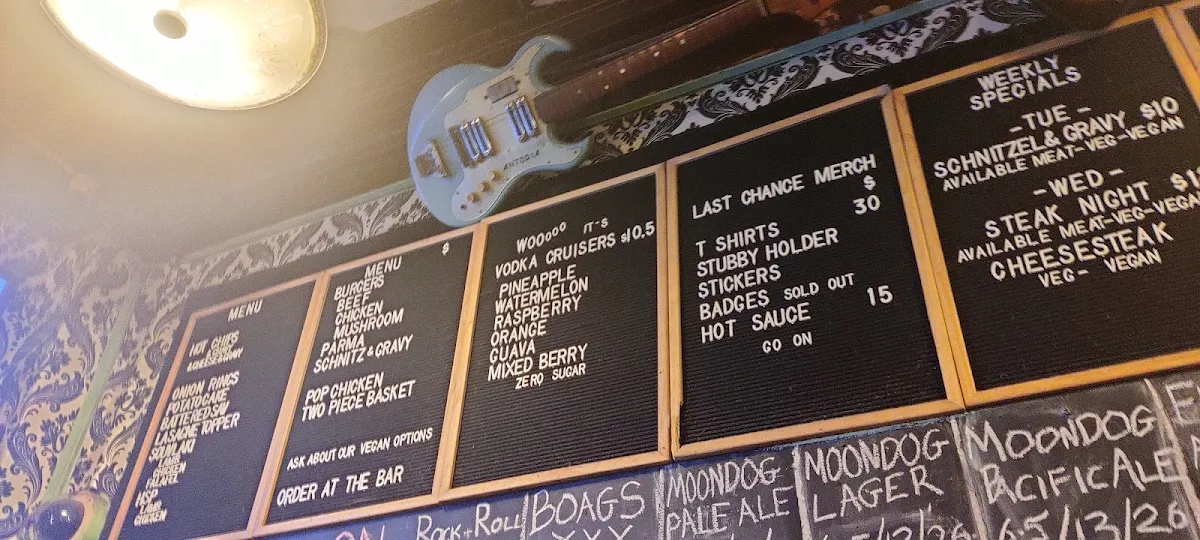 ANTORIA
MENU
HOT CHIPS
& GRAVY
& CHEESE & GRAVY
ONION RINGS
POTATO CAKE
BATTERED SAV
LASAGNE TOPPER
SOUVLAKI
LAMB
CHICKEN
FALAFEL
HSP
LAMB
CHICKEN
MENU $
BURGERS
BEEF
CHICKEN
MUSHROOM
PARMA
SCHNITZ & GRAVY
POP CHICKEN
TWO PIECE BASKET
ASK ABOUT OUR VEGAN OPTIONS
ORDER AT THE BAR
WOOOOO IT-S
VODKA CRUISERS $10.5
PINEAPPLE
WATERMELON
RASPBERRY
ORANGE
GUAVA
MIXED BERRY
ZERO SUGAR
LAST CHANCE MERCH
$
T SHIRTS 30
STUBBY HOLDER
STICKERS
BADGES SOLD OUT
HOT SAUCE 15
GO ON
WEEKLY
SPECIALS
-TUE-
SCHNITZEL & GRAVY $10
AVAILABLE MEAT-VEG-VEGAN
-WED-
STEAK NIGHT
AVAILABLE MEAT-VEG-VEGAN
CHEESESTEAK
VEG- VEGAN
ROCK+ROLL
BOAGS
XXX
MOONDOG
PALE ALE
MOONDOG
LAGER
MOONDOG
PACIFIC ALE
6.5/13/26